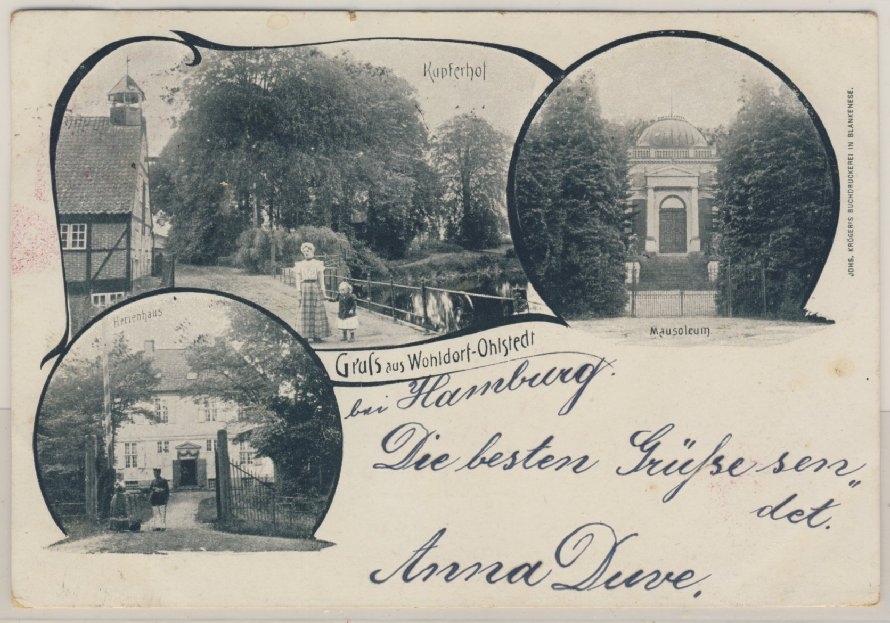 Kupferhof
Herrenhaus
Mausoleum
JOHS. KRÖGER'S BUCHDRUCKEREI IN BLANKENESE.
Gruſs aus Wohldorf-Ohlstedt
bei Hamburg.
Die besten Grüſse sen"
det.
Anna Duve.